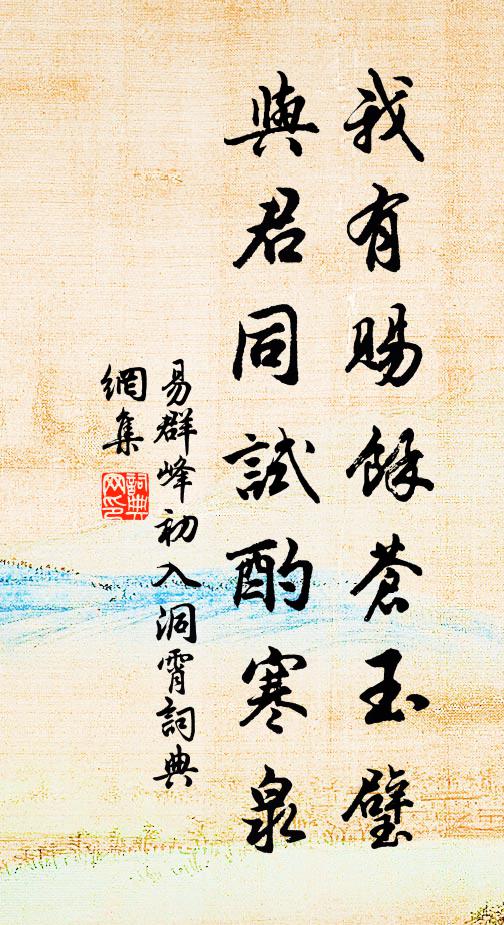 我有賜餘蒼玉璧
與君同試酌寒泉
易群峰初入洞霄詞典
網集
詞典
网印